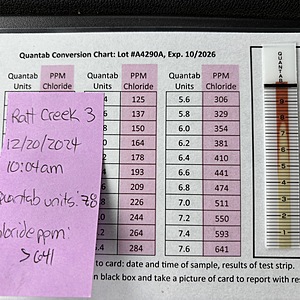 Quantab Conversion Chart: Lot #A4290A, Exp. 10/2026
Quantab Units PPM Chloride Quantab Units PPM Chloride Quantab Units PPM Chloride
.4 125 5.6 306
.6 137 5.8 329
.8 150 6.0 354
.2 162 6.2 381
.4 178 6.4 410
.6 193 6.6 441
.8 209 6.8 474
.0 226 7.0 511
.2 244 7.2 550
.4 263 7.4 593
.4 284 7.6 641
to card: date and time of sample, results of test strip.
n black box and take a picture of card to report with res
Rott Creek 3
12/20/2024
10:04am
Quantab units: 7.8
loride ppm:
>641
QUANTAB
9
8
7
6
5
4
3
2
1